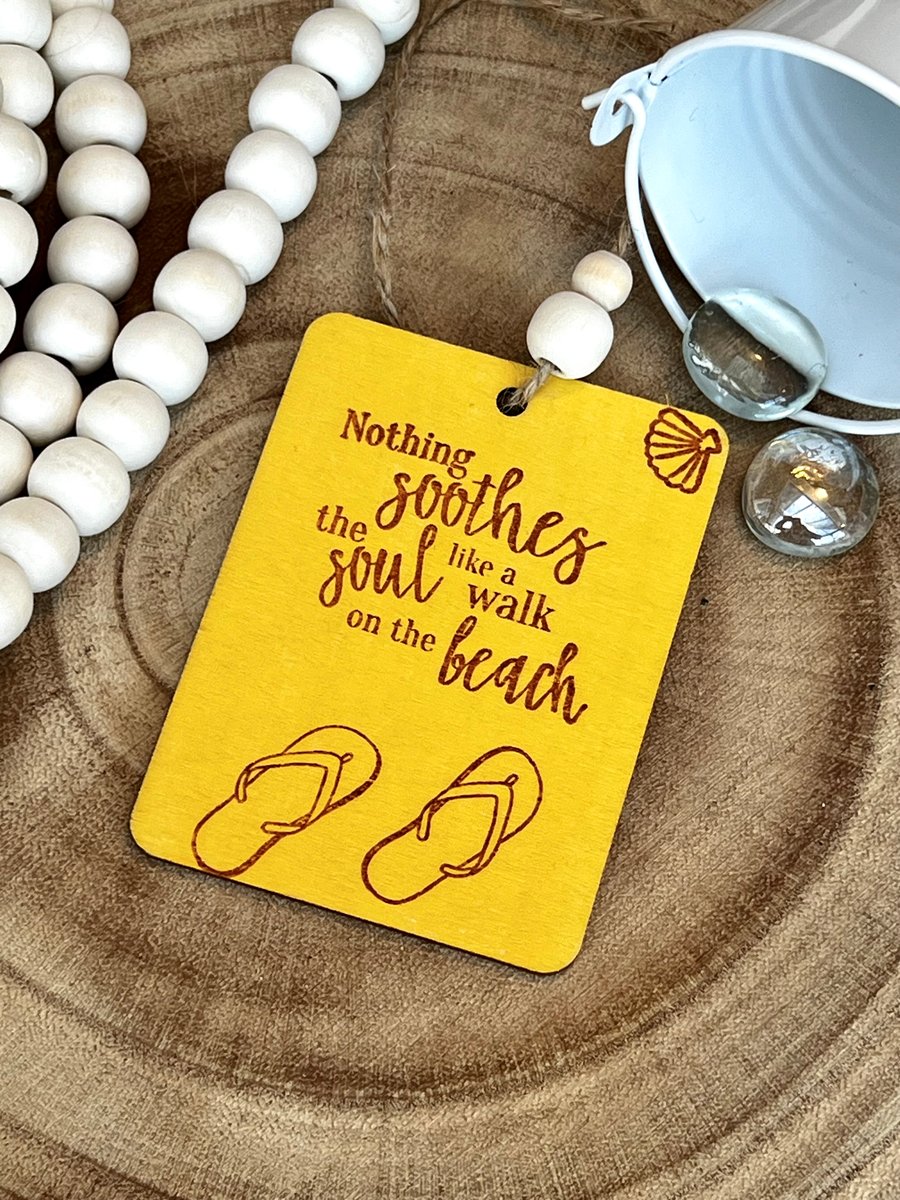 Nothing
soothes
the
soul like a
walk
on the
beach